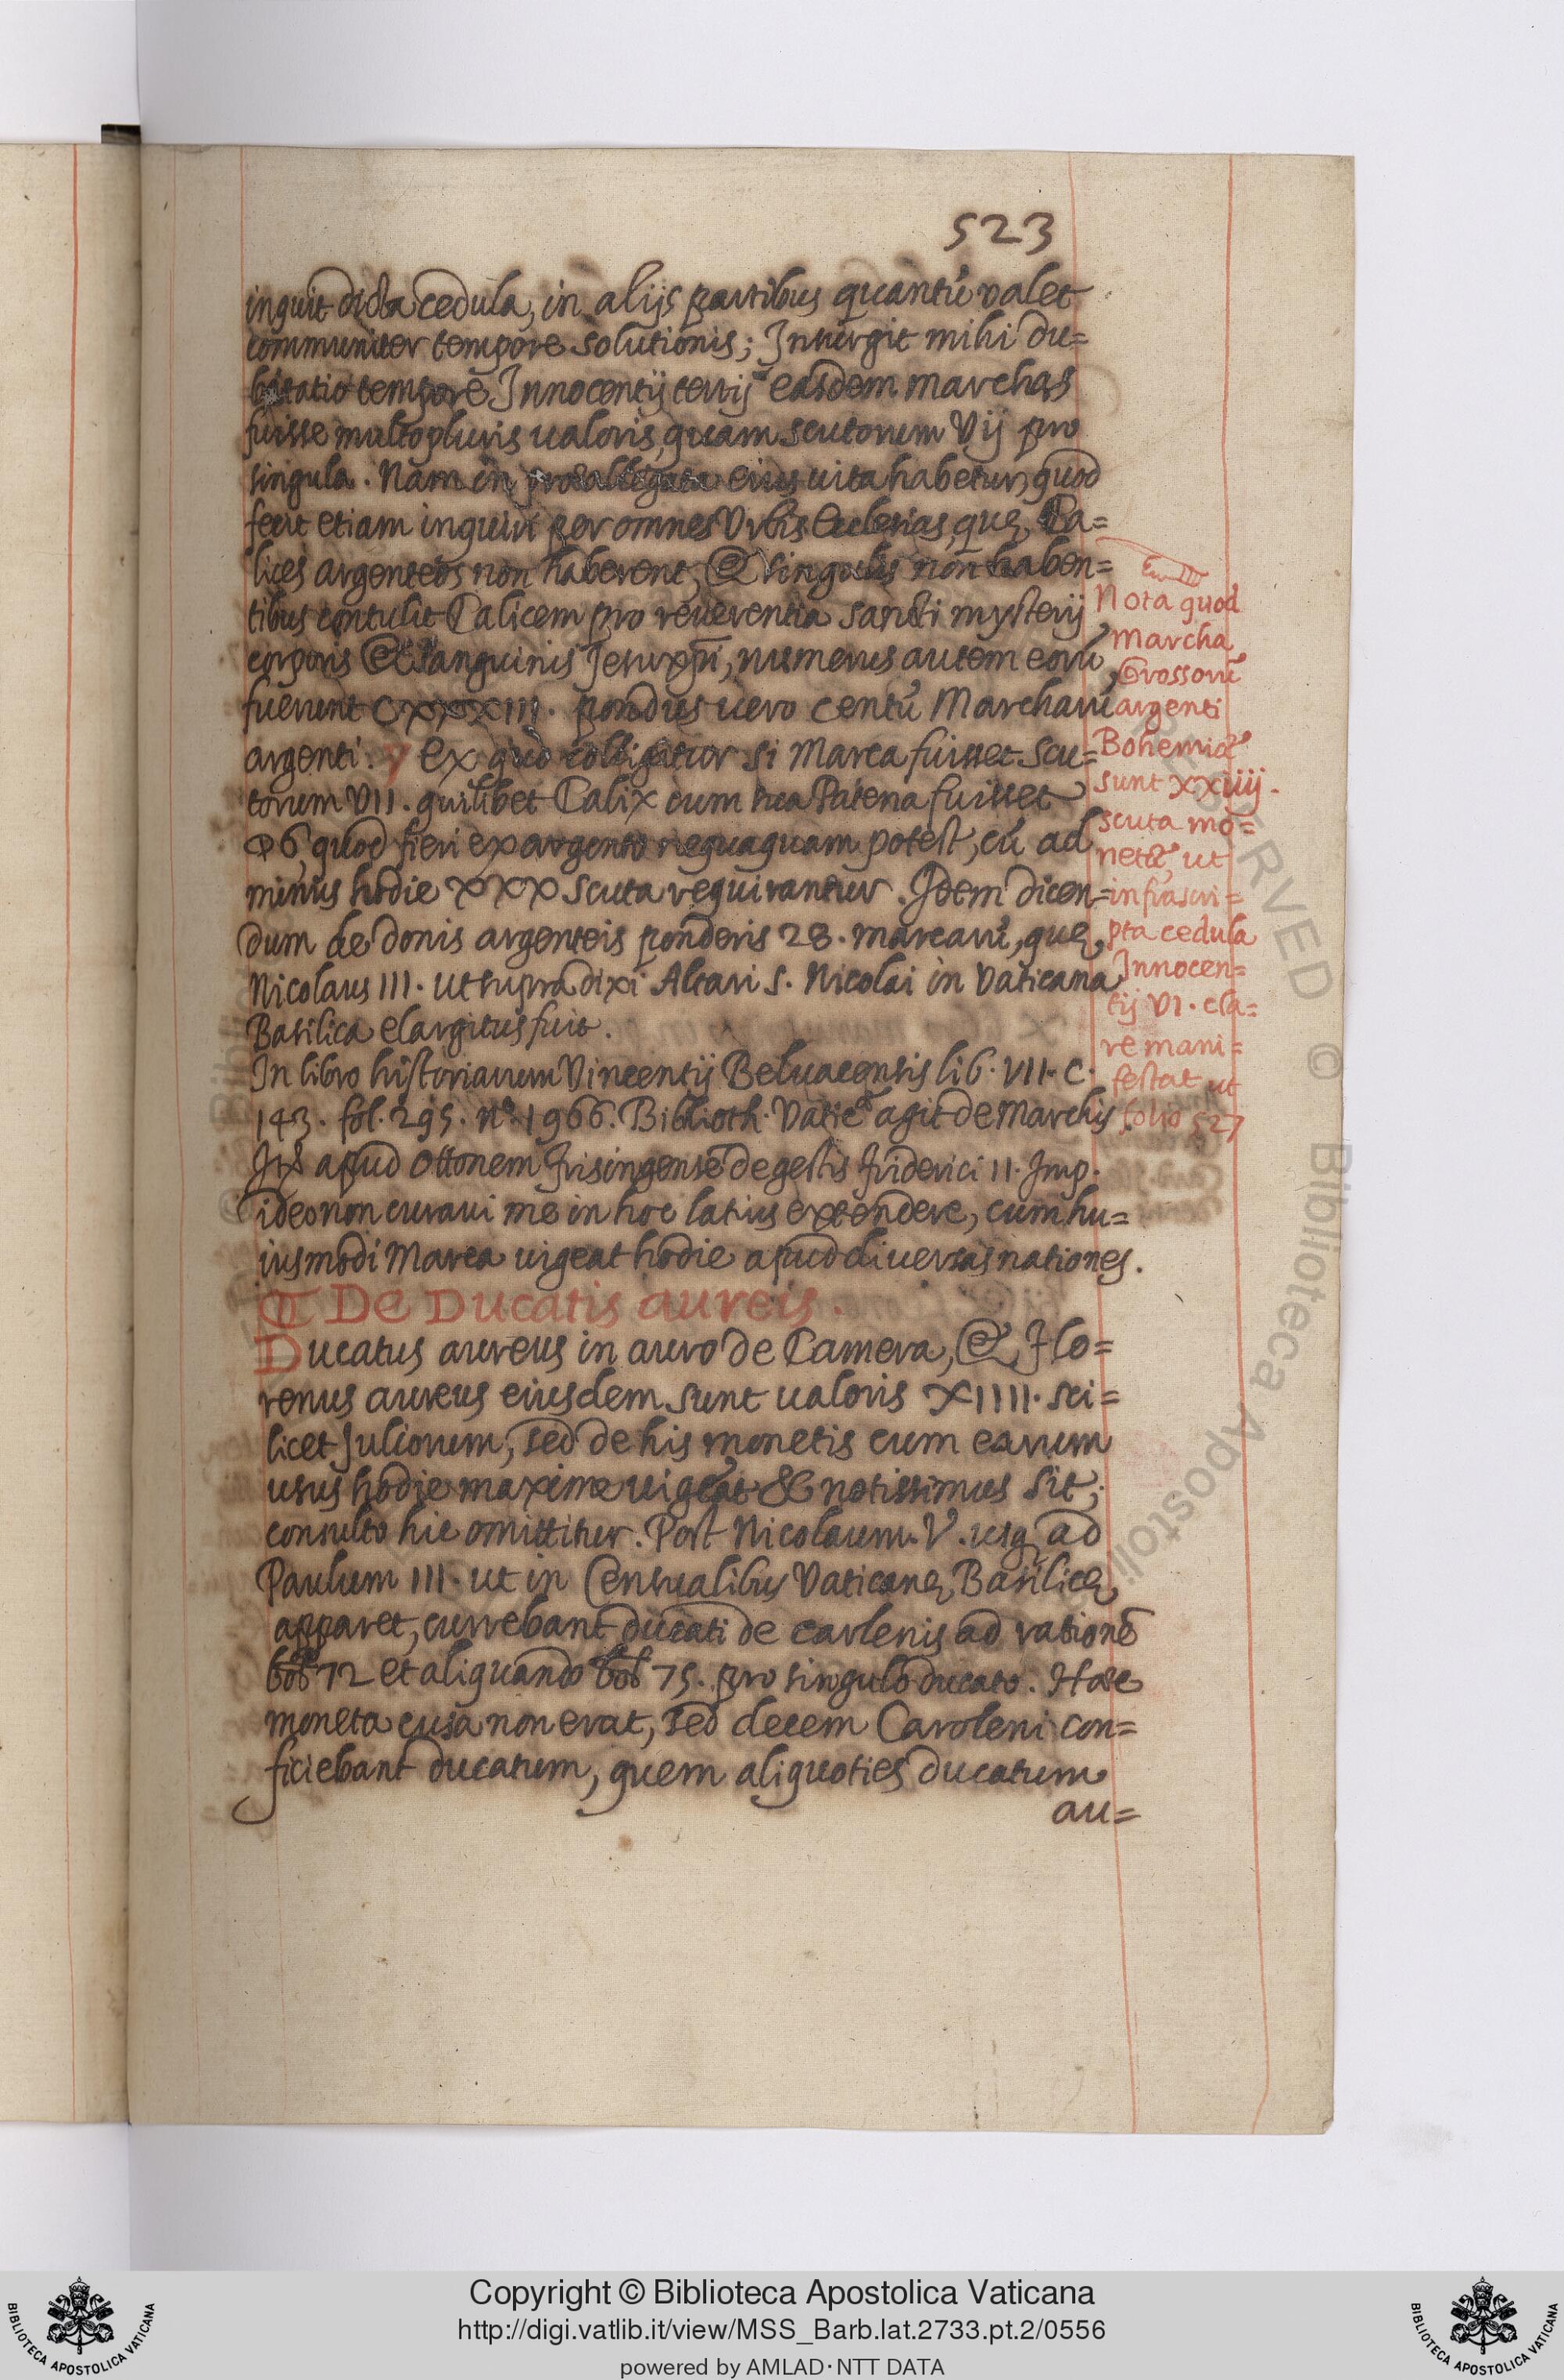 523
inquit dicta cedula, in alijs partibus quantū valet
communiter tempore solutionis; Insurgit mihi du=
bitatio tempore Innocentij tertij easdem marchas
fuisse multo pluris ualoris, quam scutorum Vij pro
singula. Nam in praeallegata eius uita habetur, quod
fecit etiam inquiri per omnes Vrbis Ecclesias, quę Ca=
lices argenteos non haberent, & singulis non haben=
tibus contulit Calicem pro reuerentia sancti mysterij
corporis & sanguinis Jesu xp̄i, numerus autem eorū
fuerunt CXXXIII. pondus uero centū Marcharū
argenti. Ex quo colligitur si Marca fuisset scu=
torum VII. quilibet Calix cum sua Patena fuisset
quod fieri ex argento nequaquam potest, cū ad
minus hodie XXX scuta requirantur. Idem dicen=
dum de donis argenteis ponderis 28. marcarū, quę
Nicolaus III. ut supra dixi Altari S. Nicolai in Vaticana
Basilica elargitus fuit.
In libro historiarum Vincentij Beluacensis lib. VII. c.
143. fol. 295. n.º 1966. Biblioth. Vatic.ᵉ agit de Marchis
Itē apud Ottonem Frisingensē de gestis Friderici II. Imp.
ideo non curaui me in hoc latius extendere, cum hu=
iusmodi Marca uigeat hodie apud diuersas nationes.
Nota quod
Marcha
Grossorū
argenti
Bohemiæ
sunt xxiiij.
scuta mo=
netæ, ut
infrascri=
pta cedula
Innocen=
tij VI. cla=
re mani=
festat ut
folio 527
De Ducatis aureis.
Ducatus aureus in auro de Camera, & Flo=
renus aureus eiusdem sunt ualoris XIIII. sci=
licet Juliorum, sed de his monetis cum earum
usus hodie maxime uigeat & notissimus sit;
consulto hic omittitur. Post Nicolaum V. usq ad
Paulum III. ut in Censualibus Vaticanę Basilicę
apparet, currebant ducati de carlenis ad rationē
bol 72 et aliquando bol 75. pro singulo ducato. Hæc
moneta cusa non erat, sed decem Caroleni con=
ficiebant ducatum, quem aliquoties ducatum
au=
Copyright © Biblioteca Apostolica Vaticana
http://digi.vatlib.it/view/MSS_Barb.lat.2733.pt.2/0556
powered by AMLAD·NTT DATA
BIBLIOTECA APOSTOLICA VATICANA
BIBLIOTECA APOSTOLICA VATICANA